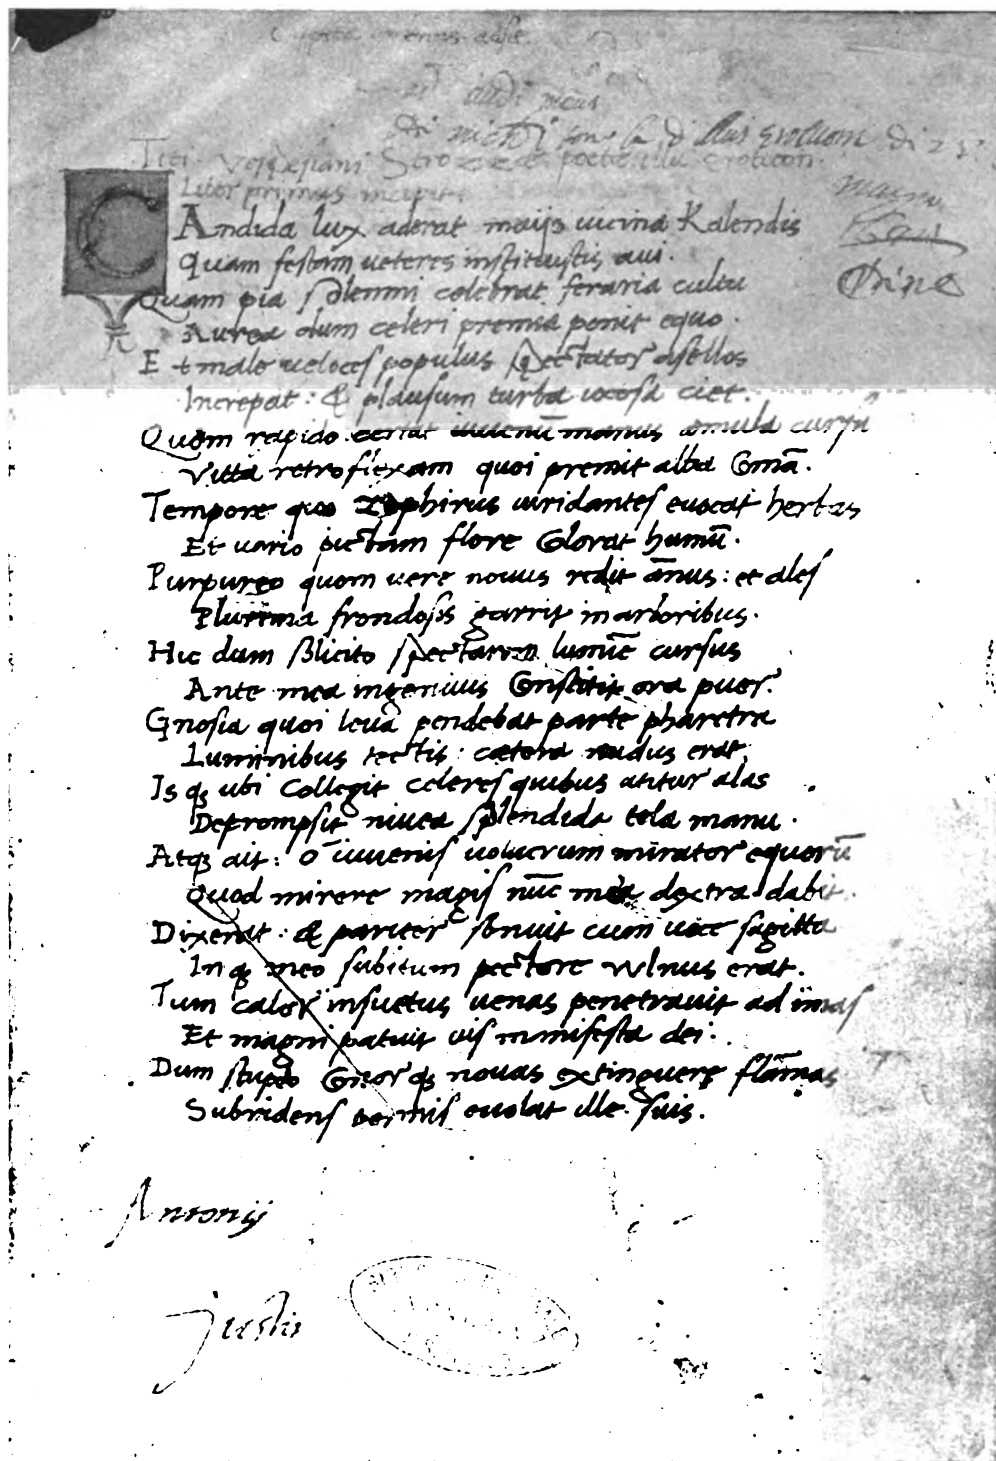 audi meus
Titi Vespesiani Strozzae poetae illu eroticon.
Liber primus incipit.
CAndida lux aderat maijs uicina Kalendis
Quam festam ueteres instituistis aui.
Quam pia solemni celebrat feraria cultu
Aurea dum celeri premia ponit equo.
Et male ueloces populus spectator asellos
Increpat: & plausum turba iocosa ciet.
Quom rapido certat iuuenū manus aemula cursu
Vitta retroflexam quoi premit alba comā.
Tempore quo Zephirus uiridantes euocat herbas
Et uario pictam flore colorat humū.
Purpureo quom uere nouus redit ānus: et ales
Plurima frondosis garrit in arboribus.
Hic dum solicito spectarem lumīe cursus
Ante mea ingenuus constitit ora puer.
Gnosia quoi leua pendebat parte pharetra
Luminibus tectis: caetera nudus erat.
Is qʒ ubi collegit celeres quibus utitur alas
Deprompsit niuea splendida tela manu.
Atqʒ ait: o iuuenis uolucrum mirator equorū
Quod mirere magis nūc mea dextra dabit.
Dixerat: & pariter sonuit cum uoce sagitta
Inqʒ meo subitum pectore vulnus erat.
Tum calor insuetus uenas penetrauit ad imas
Et magni patuit uis manifesta dei:
Dum stupeo conorqʒ nouas extinguere flāmas
Subridens pennis euolat ille suis.
Antonij